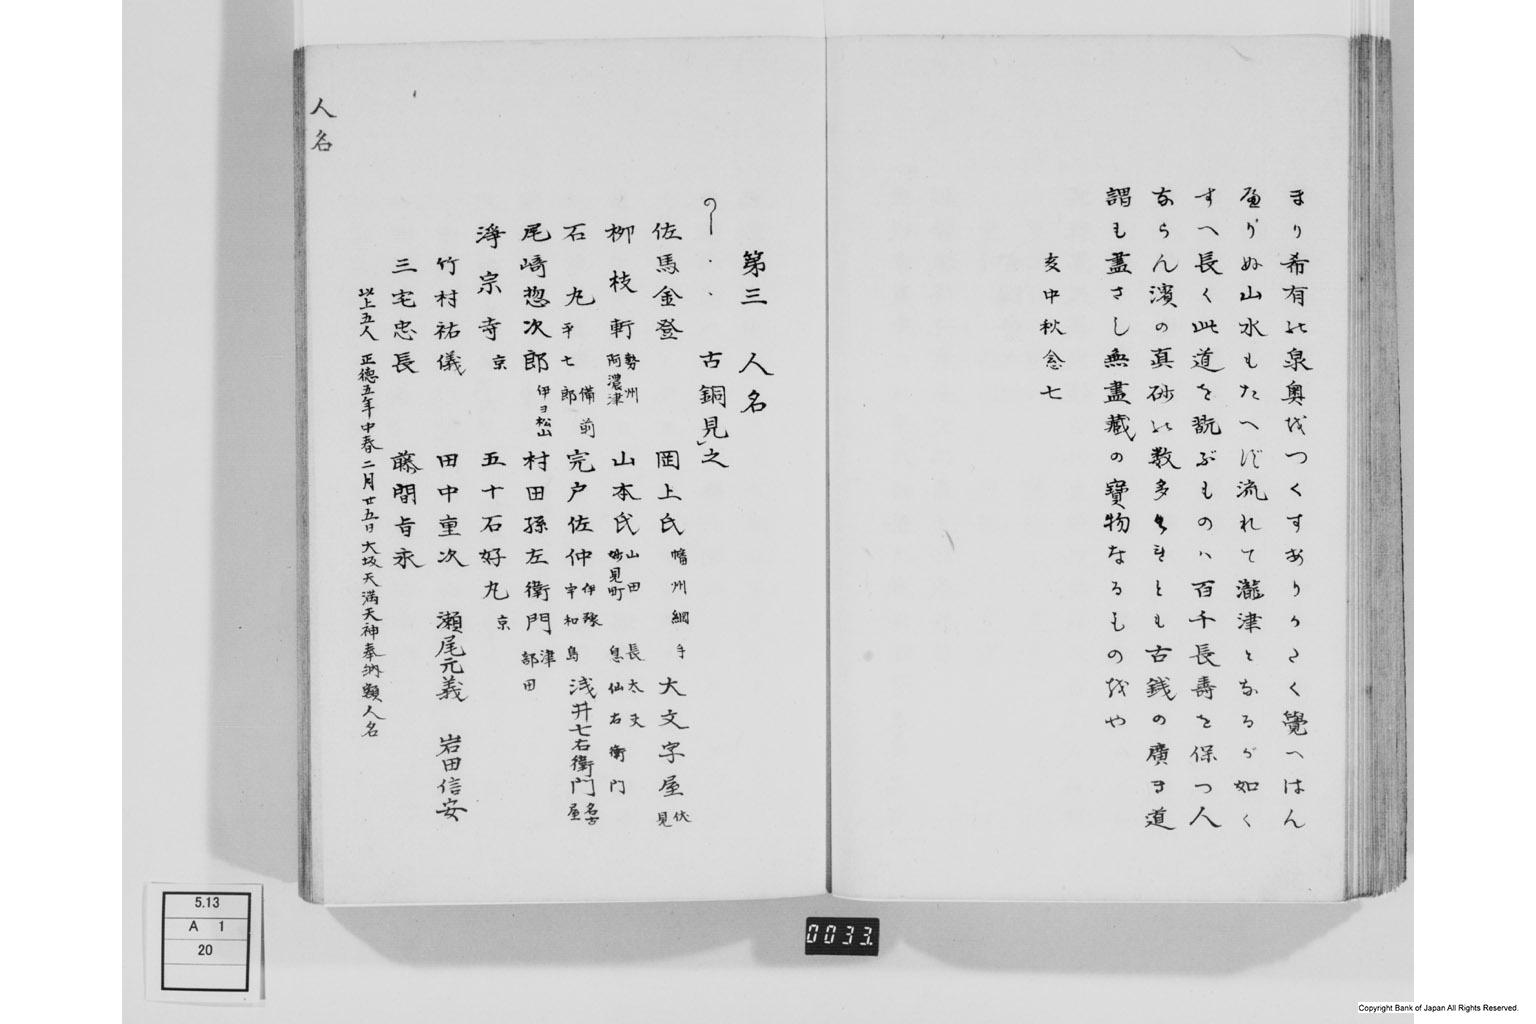 まり希有の泉奥をつくすありうさく覺へはん
ぬ山水もたへず流れて瀧津となるが如く
すへ長く此道を翫ぶものハ百千長壽を保つ人
ならん濱の真砂の数多くとも古銭の廣き道
謂も盡さし無盡藏の寶物なるものをや
亥中秋念七
人名
第三　人名
古銅見之
佐馬金登　岡上氏 幡州網手　大文字屋 伏見
柳枝軒 勢州阿濃津　山本氏 山田妙見町　長太夫息仙右衛門
石丸平七郎 備前　完戸佐仲 伊豫宇和島　浅井七右衛門 名古屋
尾崎惣次郎 伊ヨ松山　村田孫左衛門 津部田
淨宗寺 京　五十石好九 京
竹村祐儀　田中重次　瀬尾元義　岩田信安
三宅忠長　藤間旨永
以上五人　正徳五年中春二月廿五日大坂天満天神奉納額人名
5.13
A 1
20
0033.
Copyright Bank of Japan All Rights Reserved.